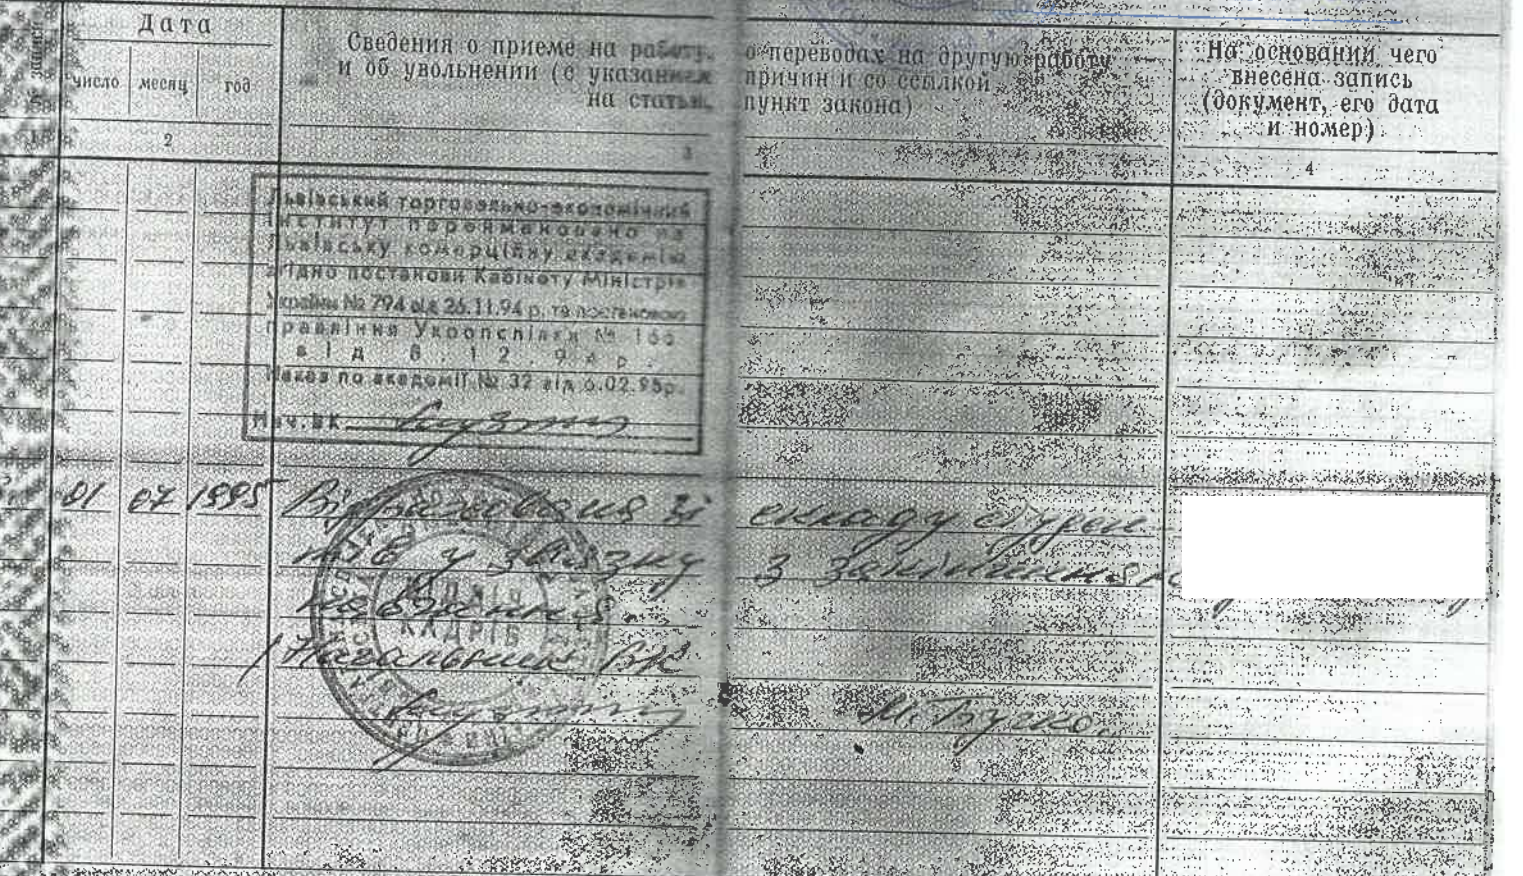 Дата
Сведения о приеме на работу, о переводах на другую работу
и об увольнении (с указанием причин и со ссылкой
на статью, пункт закона)
На основании чего
внесена запись
(документ, его дата
и номер)
число месяц год
2 3 4
Львівський торговельно-економічний
інститут перейменовано на
Львівську комерційну академію
згідно постанови Кабінету Міністрів
України № 794 від 26.11.94 р. та постановою
правління Укоопспілки №
від 8.12.94р.
Наказ по академії № 32 від 6.02.95р.
Нач.ВК
01 07 1995 Відрахована зі складу студен
тів у звязку з закінченням
навчання.
Начальник ВК
М. Бучко.
ВІДДІЛ
КАДРІВ